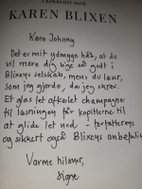 I værelset med
KAREN BLIXEN
Kære Johnny
Det er mit ydmyge håb, at du
vil more dig lige så godt i
Blixens selskab, mens du læser,
som jeg gjorde, da jeg skrev.
Et glas let afkølet champagne
til læsningen får kapitlerne til
at glide let ned - forfatterens
og sikkert også Blixens anbefaling
Varme hilsner,
Signe